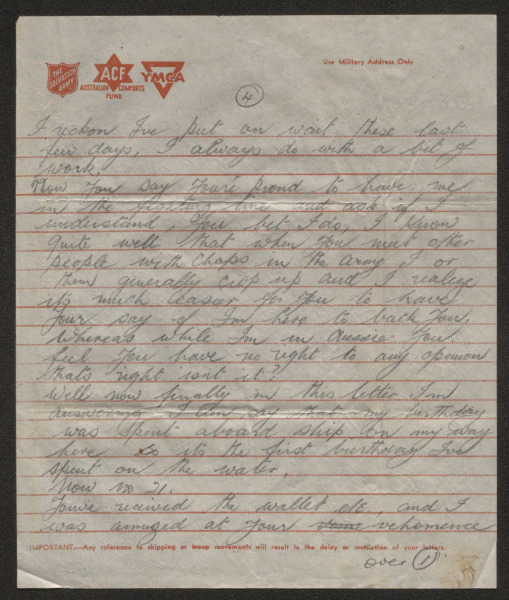 THE SALVATION ARMY
ACF
AUSTRALIAN COMFORTS FUND
YMCA
Use Military Address Only
4
I reckon I've put on wait these last
few days, I always do with a bit of
work.
Now you say you're proud to have me
in the fighting line and ask if I
understand, You bet I do, I know
quite well that when you meet other
people with chaps in the army I or
them generally crop up and I realize
its much easier for you to have
your say if I'm here to back you,
whereas while I'm in Aussie you
feel you have no right to any opinion
thats right isn't it?
Well now finally in this letter I'm
answering I can say that my birthday
was spent aboard ship on my way
here so its the first birthday I've
spent on the water,
Now no 21.
You've recieved the wallet etc, and I
was amused at your some vehemence
IMPORTANT.—Any reference to shipping or troop movements will result in the delay or mutilation of your letters.
over 1